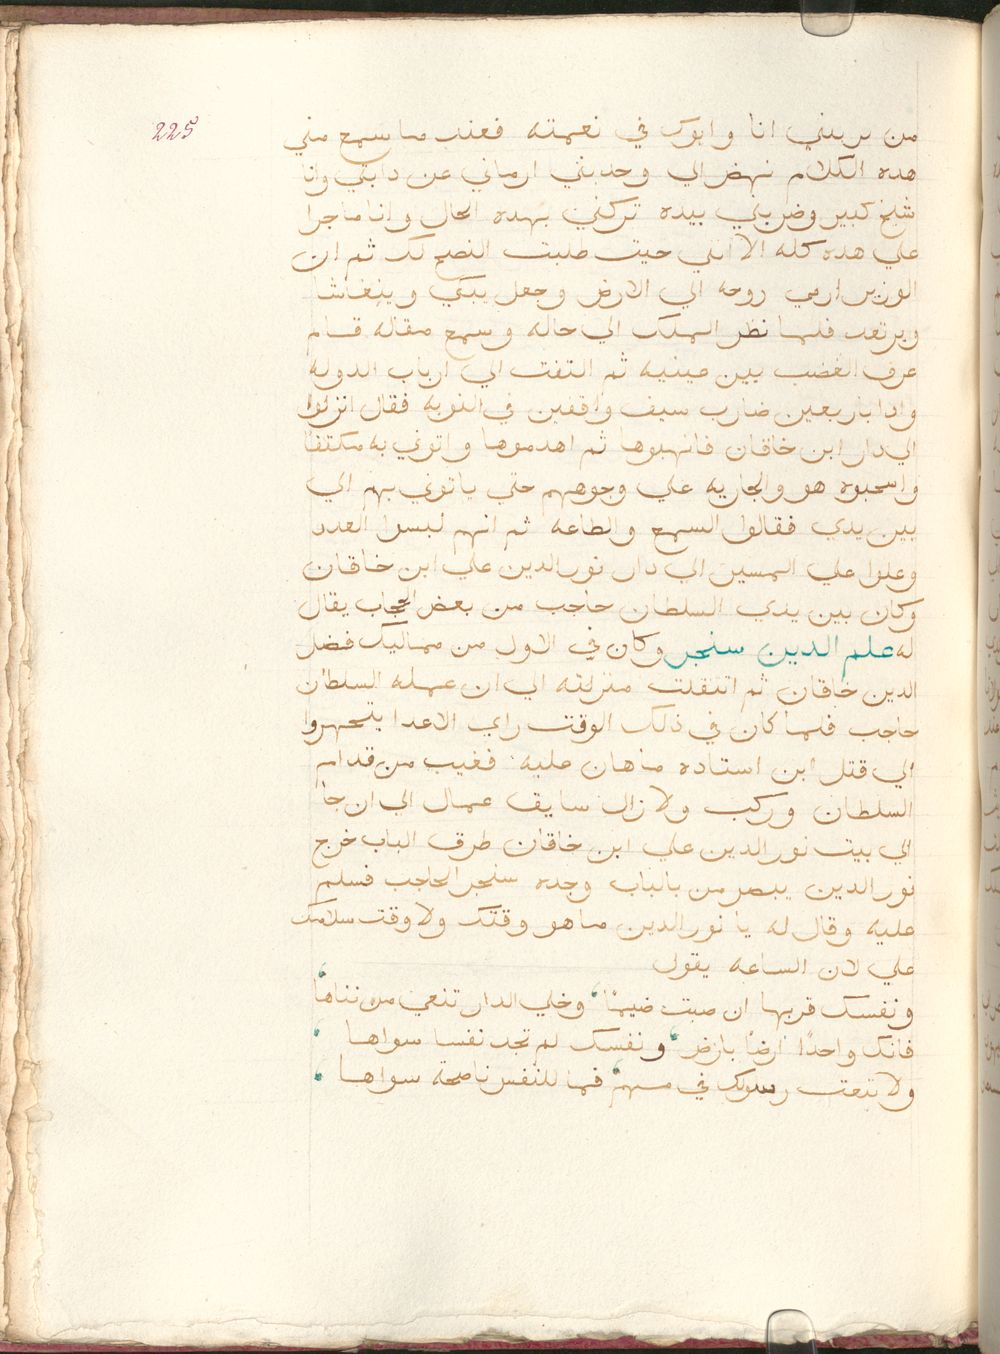 225
من بربني انا وابوك في نعمته فعند ما سمع مني
هده الكلام نهض الي وجدبني ارماني عن دابتي وانا
شيخ كبير وضربني بيده تركني بهده الحال وانا ما جرا
علي هده كله الا انني حيت طلبت النصح لك ثم ان
الوزير ارمي روحه الي الارض وجعل يبكي وينغاشا
ويرتعد فلما نظر الملك الي حاله وسمع مقاله قام
عرق الغضب بين عينيه ثم التفت الي ارباب الدوله
وادا باربعين ضارب سيف واقفين في النوبه فقال انزلوا
الي دار ابن خاقان فانهبوها ثم اهدموها واتوني به مكتفا
واسحبوه هو والجاريه علي وجوههم حتي ياتوني بهم الي
بين يدي فقالوا السمع والطاعه ثم انهم لبسوا العدد
وعلوا علي المسير الي دار نور الدين علي ابن خاقان
وكان بين يدي السلطان حاجب من بعض الحجاب يقال
له علم الدين سنجر وكان في الاول من مماليك فضل
الدين خاقان ثم اتنقلت منزلته الي ان عمله السلطان
حاجب فلما كان في ذلك الوقت راي الاعدا يتجهروا
الي قتل ابن استاده ماهان عليه فغيب من قدام
السلطان وركب ولا زال سايق عمال الي ان جا
الي بيت نور الدين علي ابن خاقان طرق الباب خرج
نور الدين يبصر من بالباب وجده سنجر الحاجب فسلم
عليه وقال له يا نور الدين ما هو وقتك ولا وقت سلامك
علي لان الساعه يقول
ونفسك قربها ان صبت ضيمًا وخلي الدار تنعي من نناها
فانك واحدًا ارضًا بارض ونفسك لم تجد نفسا سواها
ولا تبعت رسولك في مهم فما للنفس ناصحة سواها